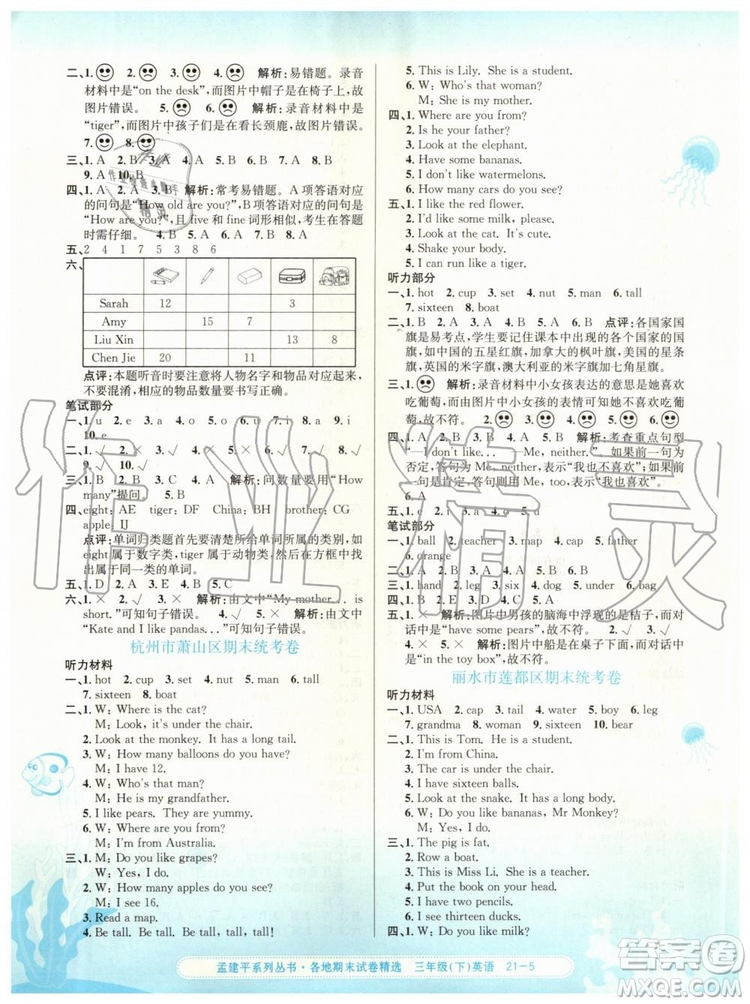 二、1.
2.
3.
4.
解析:易错题。录音
材料中是“on the desk”,而图片中帽子是在椅子上,故
故图片错误。 5. 6. 解析:录音材料中是
“tiger”,而图片中孩子们是在看长颈鹿。故图片错误。
7. 8.
三、1. A 2. B 3. A 4. B 5. A 6. B 7. B 8. B
9. A 10. A
四、1. A 2. B 3. A 解析:常考易错题。A项答语对应
的问句是“How old are you?”,B项答语对应的问句是
“How are you?”,且 five 和 fine 词形相似,考生在答题
时需仔细。
五、2 4 1 7 5 3 8 6
六、
Sarah 12 3
Amy 15 7
Liu Xin
Chen Jie 20 11
点评:本题听音时要注意将人物名字和物品对应起来,
不要混淆,相应的物品数量要书写正确。
笔试部分
一、1. u 2. e
10. e
二、1.
三、1. C 2. B 3. C 4. A 解析:问数量要用“How
many”提问。
四、eight: AE tiger: DF China: BH brother: CG
apple: IJ
点评:单词归类题首先要清楚所给单词的类别,如
eight属于数字类,tiger属于动物类,然后再从方框中
找同一类的单词。
五、1. D 2. A 3. E 4. B 5. C
六、1. × 2. √ 3. × 解析:由文中“My mother... is
short.”可知句子错误。 4. √ 5. × 解析:由文中
“Kate and I like pandas...”可知句子错误。
杭州市萧山区期末统考卷
听力材料
一、1. hot 2. cup 3. set 4. nut 5. man 6. tall
7. sixteen 8. boat
二、1. W: Where is the cat?
M: Look, it's under the chair.
2. Look at the monkey. It has a long tail.
3. W: How many balloons do you have?
M: I have 12.
4. W: Who's that man?
M: He is my grandfather.
5. I like pears. They are yummy.
6. W: Where are you from?
M: I'm from Australia.
三、1. M: Do you like grapes?
W: Yes, I do.
2. W: How many apples do you see?
M: I see 16.
3. Read a map.
4. Be tall. Be tall. Be tall, tall, tall.
5. This is Lily. She is a student.
6. W: Who's that woman?
M: She is my mother.
四、1. Where are you from?
2. Is he your father?
3. Look at the elephant.
4. Have some bananas.
5. I don't like watermelons.
6. How many cars do you see?
五、1. I like the red flower.
2. I'd like some milk, please.
3. Look at the cat. It's cute.
4. Shake your body.
5. I can run like a tiger.
听力部分
一、1. hot 2. cup 3. set 4. nut 5. man 6. tall
7. sixteen 8. boat
二、1. B 2. A 3. B 4. A 5. B 6. A 点评:各国家国
旗是易考点,学生要记住课本中出现的一些国旗,
如中国的五星红旗、加拿大的枫叶旗、美国的星条
旗、英国的米字旗、澳大利亚的米字加七角星旗。
三、1. 解析:录音材料中小女孩表达的意思是她喜
欢吃葡萄,而图片中小女孩的表情可知她不喜欢吃
葡萄,故不符。 2. 3. 4. 5. 6.
四、1. A 2. B 3. A 4. B 5. B 解析:考查重点句型
“—I don't like... —Me, neither.”,如果前一句为
否定,答句为Me, neither,表示“我也不喜欢”,如果前
一句是肯定,答句用Me, too,表示“我也喜欢”。
6. A
五、1.
笔试部分
一、1. ball 2. teacher 3.
6. orange
二、1. C 2. A 3. B
三、1. hand 2. leg 3. sixteen 4.
四、1. C 2. B 3. C 4. A 5. B 6. A
五、1.
2. × 解析:图片中男孩的脑海中浮现的是桔子,而
句意为“我喜欢梨”,故不符。 3. √ 4. √
5. × 解析:图片中船是在桌子下面,而句意为船在
桌子上,故不符。
丽水市莲都区期末统考卷
听力材料
一、1. USA 2. cap 3. tail 4. water 5. boy 6. leg
7. grandma 8. woman 9. bed 10. sixteen
二、1. This is Tom. He is a student.
2. I'm from China.
3. The cat is under the chair.
4. I have sixteen balls.
5. Look at the snake. It has a long body.
6. Have some bananas, Mr Monkey!
7. M: How many kites do you have?
W: I have 12.
三、1. The pig is fat.
2. Row a boat.
3. This is Miss Li. She is a teacher.
4. Put the book on your head.
5. I have two pencils.
6. I like apples.
孟建平系列丛书·各地期末试卷精选 三年级(下)英语 21-5
作业精灵
答案圈
MXQE.COM